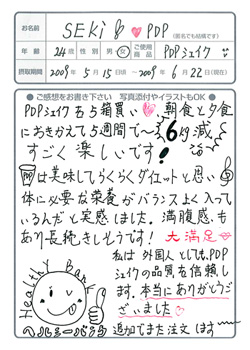 お名前 SEKi ♡ PDP (匿名でも結構です)
年齢 24歳 性別 男・女 ご使用商品 PDPシェイク
摂取期間 2009年5月15日頃 〜 2009年6月22日(現在)
● ご感想をお書き下さい 写真添付やイラストもOK ●
PDPシェイクを5箱買い♡朝食と夕食
におきかえて5週間で〜6kg減
すごく楽しいです!
は美味してらくらくダイエットと思い
体に必要な栄養がバランスよく入って
いるんだと実感しました。満腹感も
あり長続きしそうです! 大満足♡
私は外国人としても、PDP
シェイクの品質を信頼し
ます。本当にありがとうご
ざいました♡
追加でまた注文します
Healthy Bank
ヘルシーバンク